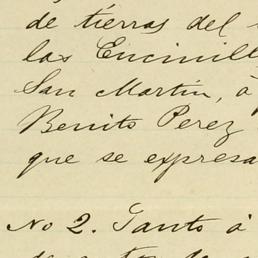 de tierras del
las Encinill
San Martin, a
Benito Perez
que se expresa
No 2. Tanto á